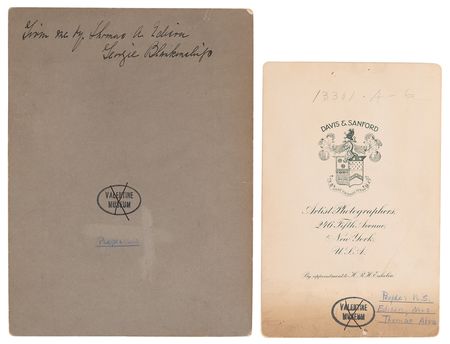 Given me by Thomas A. Edison
Georgie Blankenship
VALENTINE
MUSEUM
13301-A-6
DAVIS & SANFORD
Artist Photographers,
246 Fifth Avenue,
New York,
U.S.A.
By appointment to H.R.H. Eulalia
VALENTINE
MUSEUM
People: N.S.
Edison, Mrs.
Thomas Alva